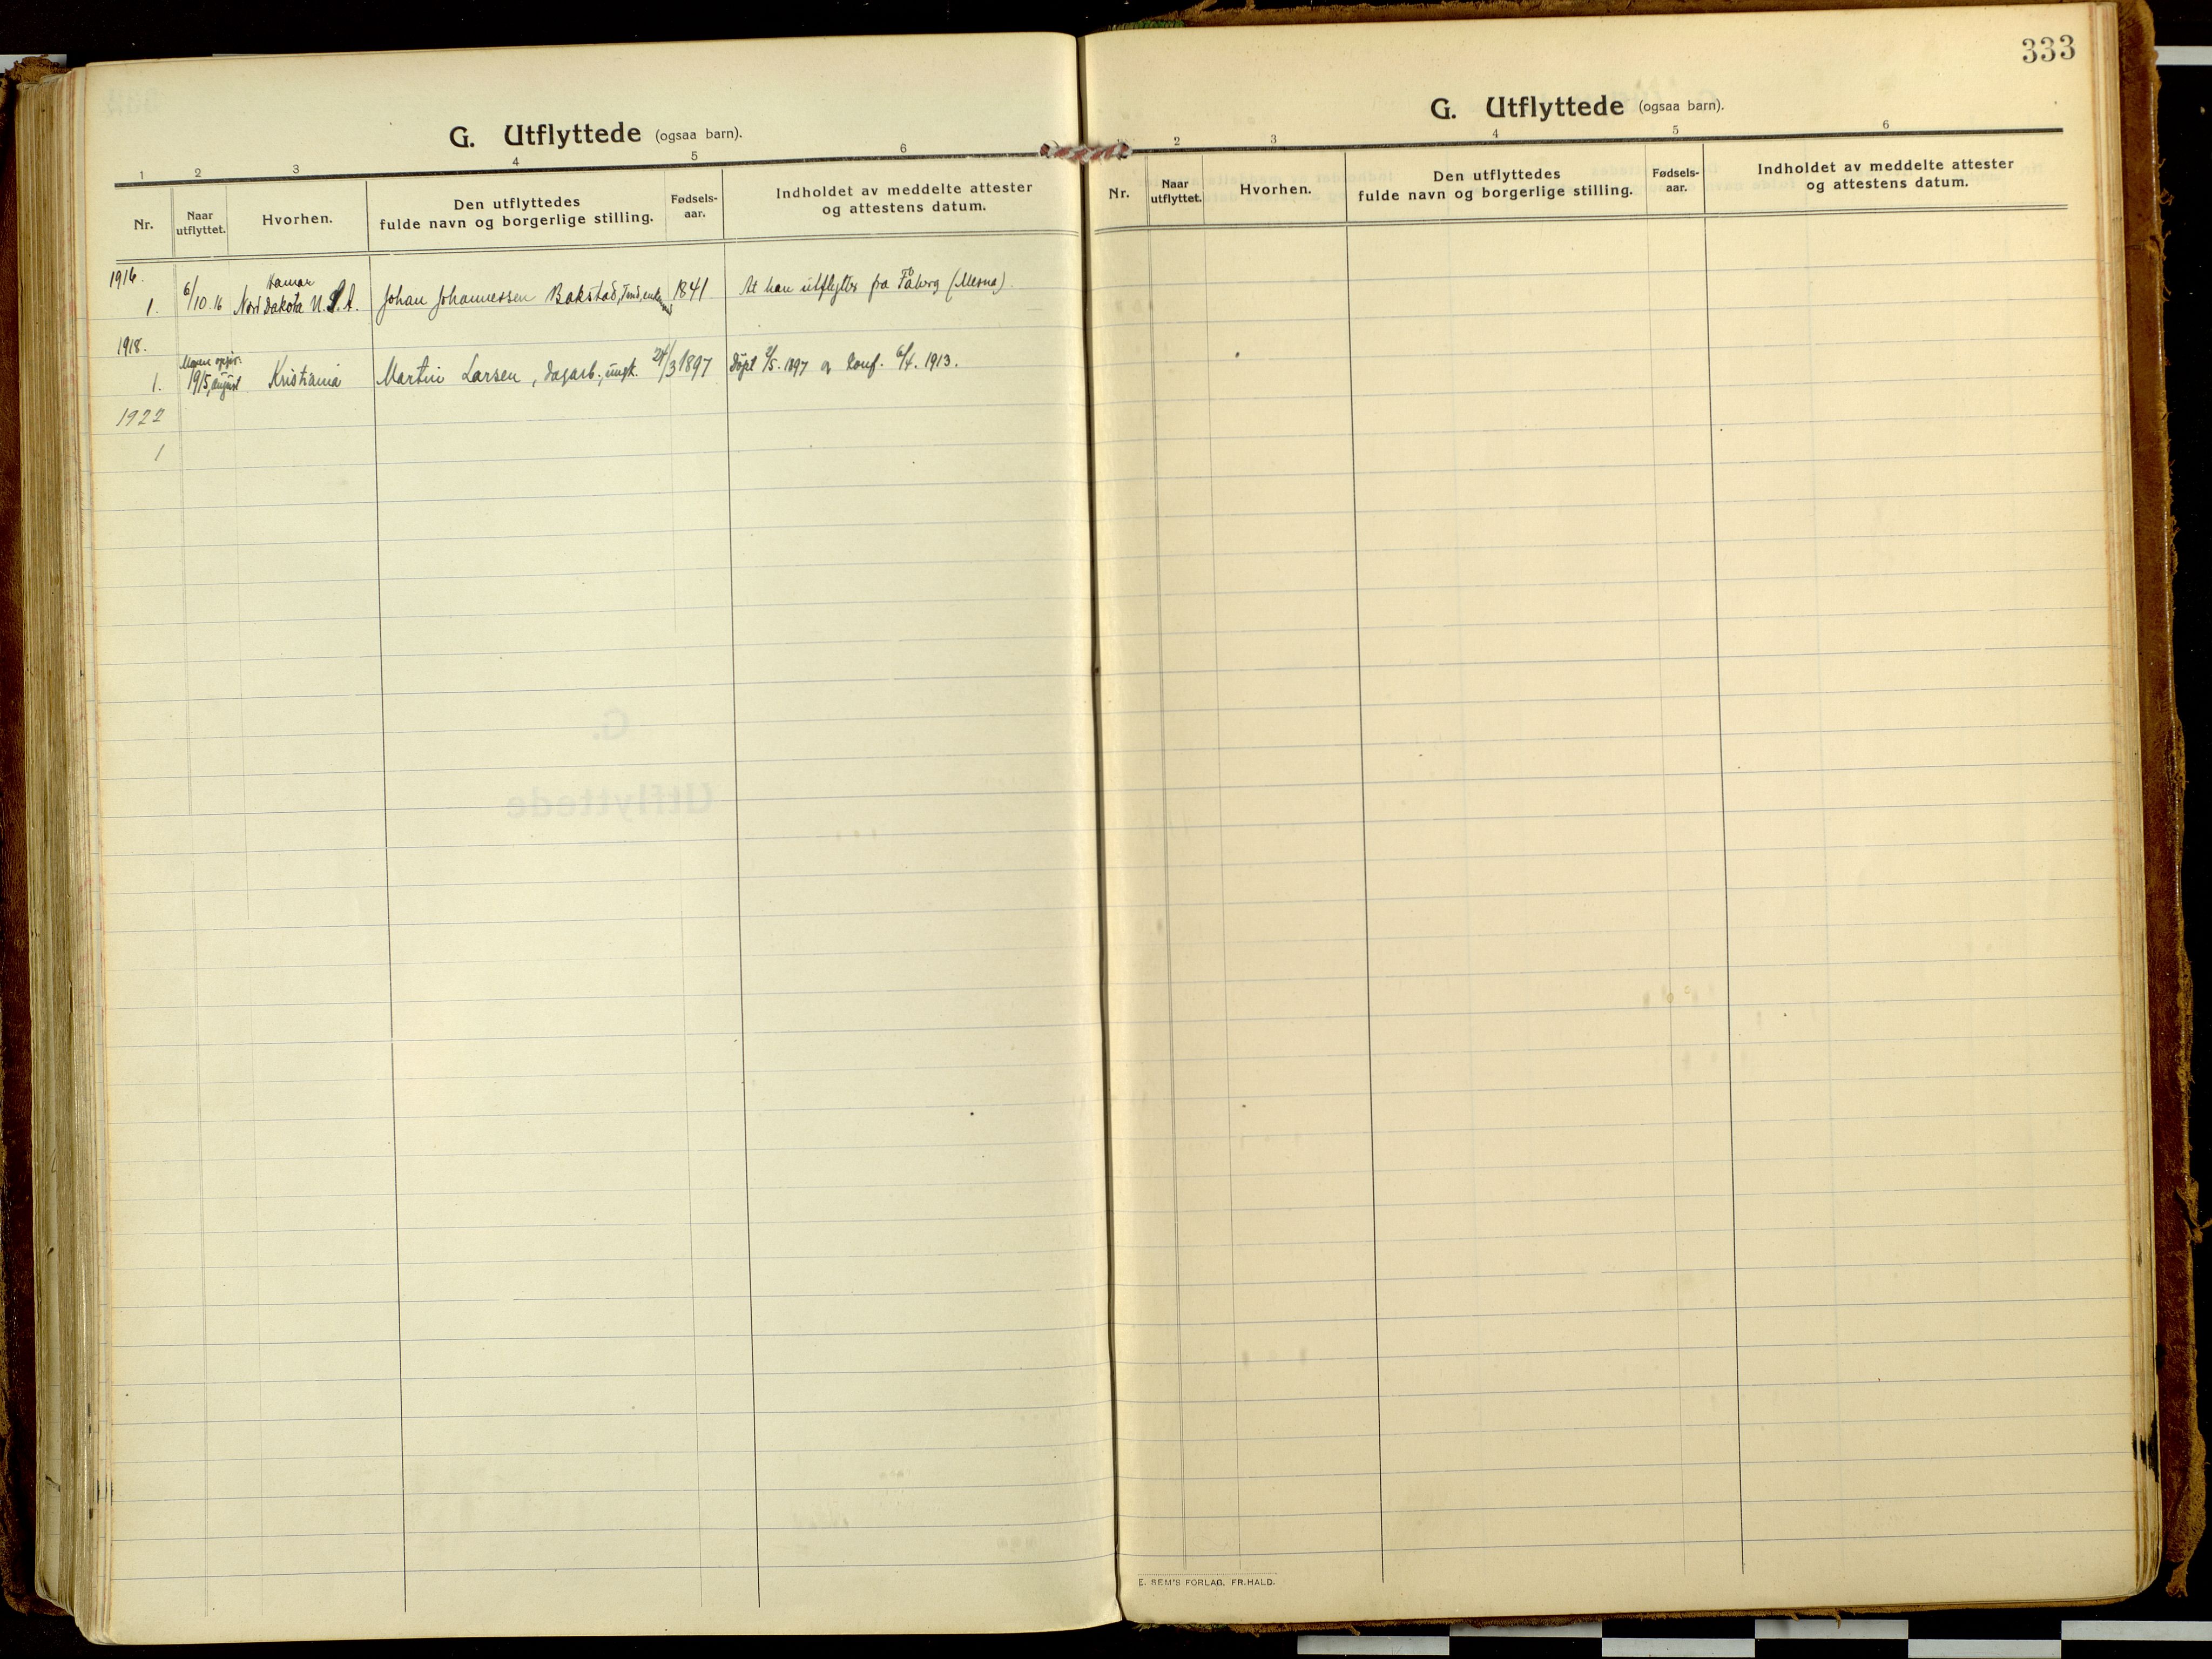 333
G. Utflyttede (ogsaa barn).
1 2 3 4 5 6
Nr. Naar utflyttet. Hvorhen. Den utflyttedes fulde navn og borgerlige stilling. Fødsels-aar. Indholdet av meddelte attester og attestens datum.
1916.
Hamar
1. 6/10.16 Nord Dakota U.S.A. Johan Johannessen Bakstad, 1841 At han utflytter fra Faaberg (Mesna).
1918.
1. 1915, august Kristiania Martin Larsen, dagarb., ungk. 24/3 1897 Døpt 2/5. 1897 og konf. 6/4. 1913.
1922
1
G. Utflyttede (ogsaa barn).
1 2 3 4 5 6
Nr. Naar utflyttet. Hvorhen. Den utflyttedes fulde navn og borgerlige stilling. Fødsels-aar. Indholdet av meddelte attester og attestens datum.
E. SEM'S FORLAG, FR.HALD.